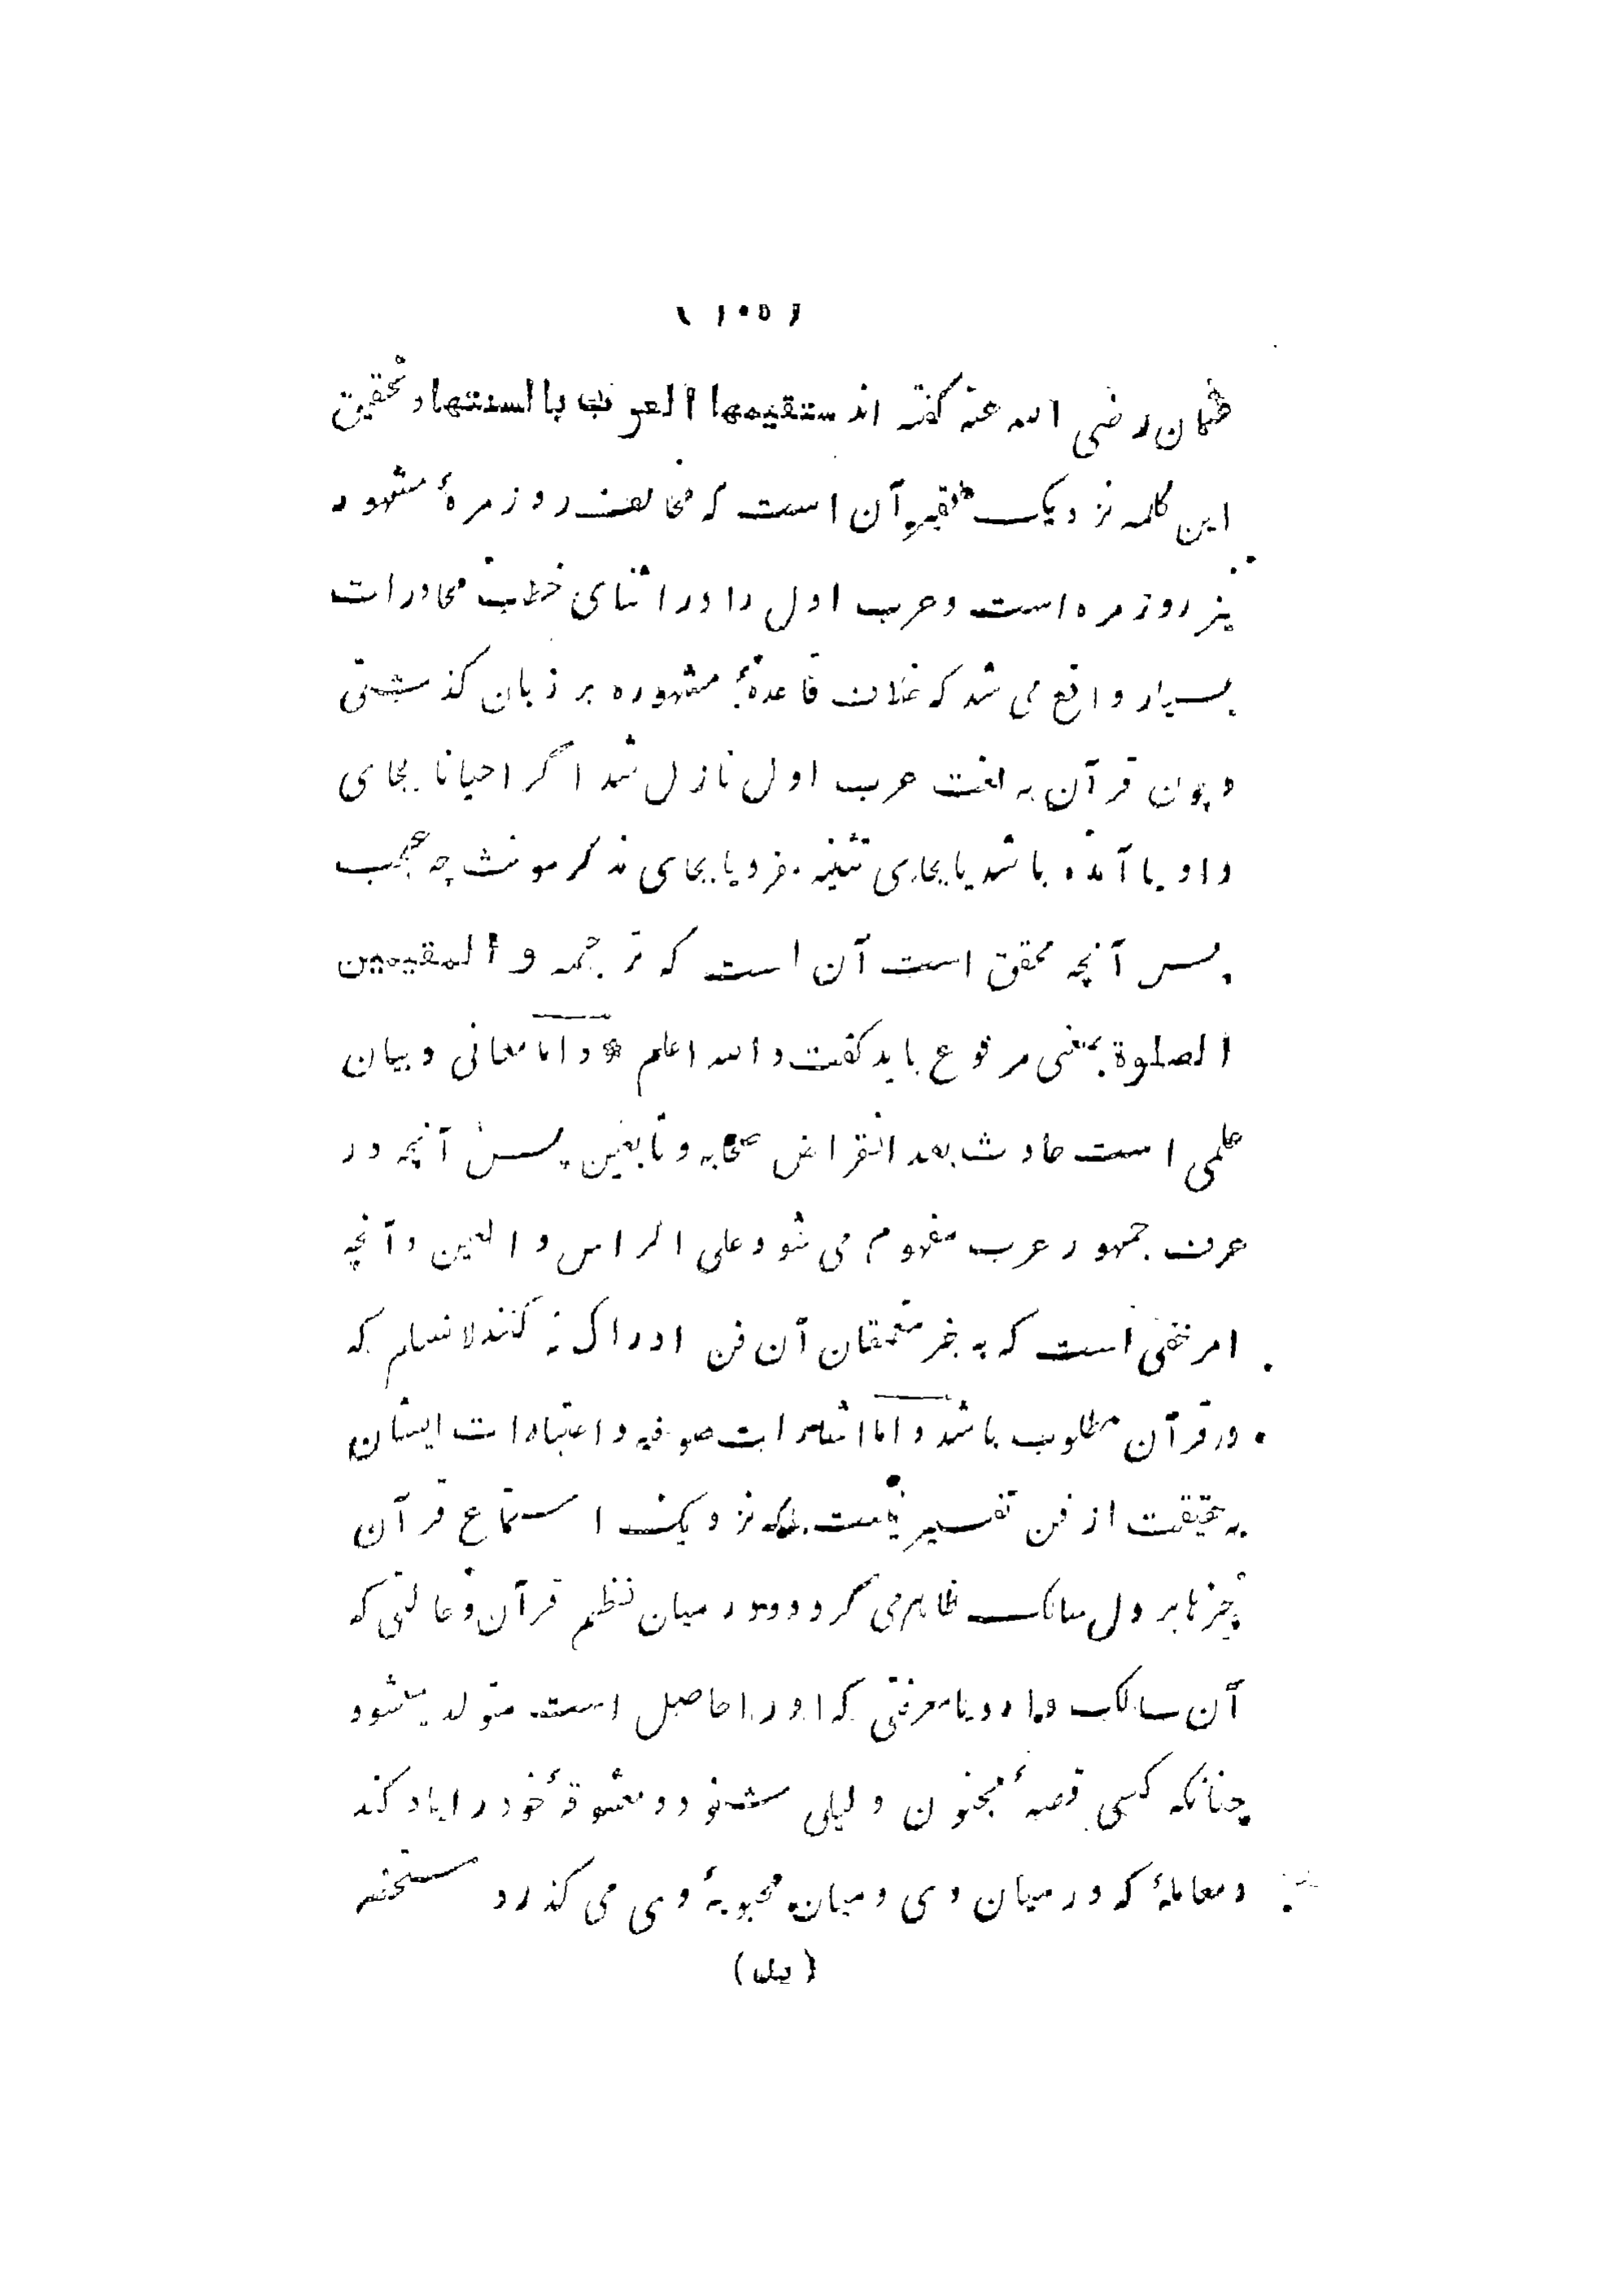 ( ١٠٥ )
عثمان رضی الله عنه کفته اند ستقیمها العرب بالسنتها و تحقیق
این کلمه نزدیک فقیر آن است که مخالف روزمرهٔ مشهور
نیز روزمره است و عرب اول را در اثنای خطب محاورات
بسیار واقع می شد که خلاف قاعدهٔ مشهوره بر زبان کذشتی
و چون قرآن به لغت عرب اول نازل شد اکر احیانا بجای
واو یا آمده باشد یا بجای تثنیه مفرد یا بجای مذکر مونث چه عجب
پس آنچه محقق است آن است که ترجمه و المقیمین
الصلوة بمعنی مرفوع باید کفت و الله اعلم * و اما معانی و بیان
علمی است حادث بعد انقراض صحابه و تابعین پس آنچه در
عرف جمهور عرب مفهوم می شود علی الراس و العین و آنچه
امر خفی است که به جز متعمقان آن فن ادراک نه کنند لا نسلم که
در قرآن مطلوب باشد و اما اشارات صوفیه و اعتبارات ایشان
به حقیقت از فن تفسیر نیست بلکه نزدیک استماع قرآن
چیزها بر دل سالک ظاهر می کردد و در میان نظم قرآن و حالتی که
آن سالک دارد یا معرفتی که او را حاصل است متولد میشود
چنانکه کسی قصهٔ مجنون و لیلی شنود و معشوقهٔ خود را یاد کند
و معاملهٔ که در میان وی و میان محبوبهٔ وی می کذرد مستحضر